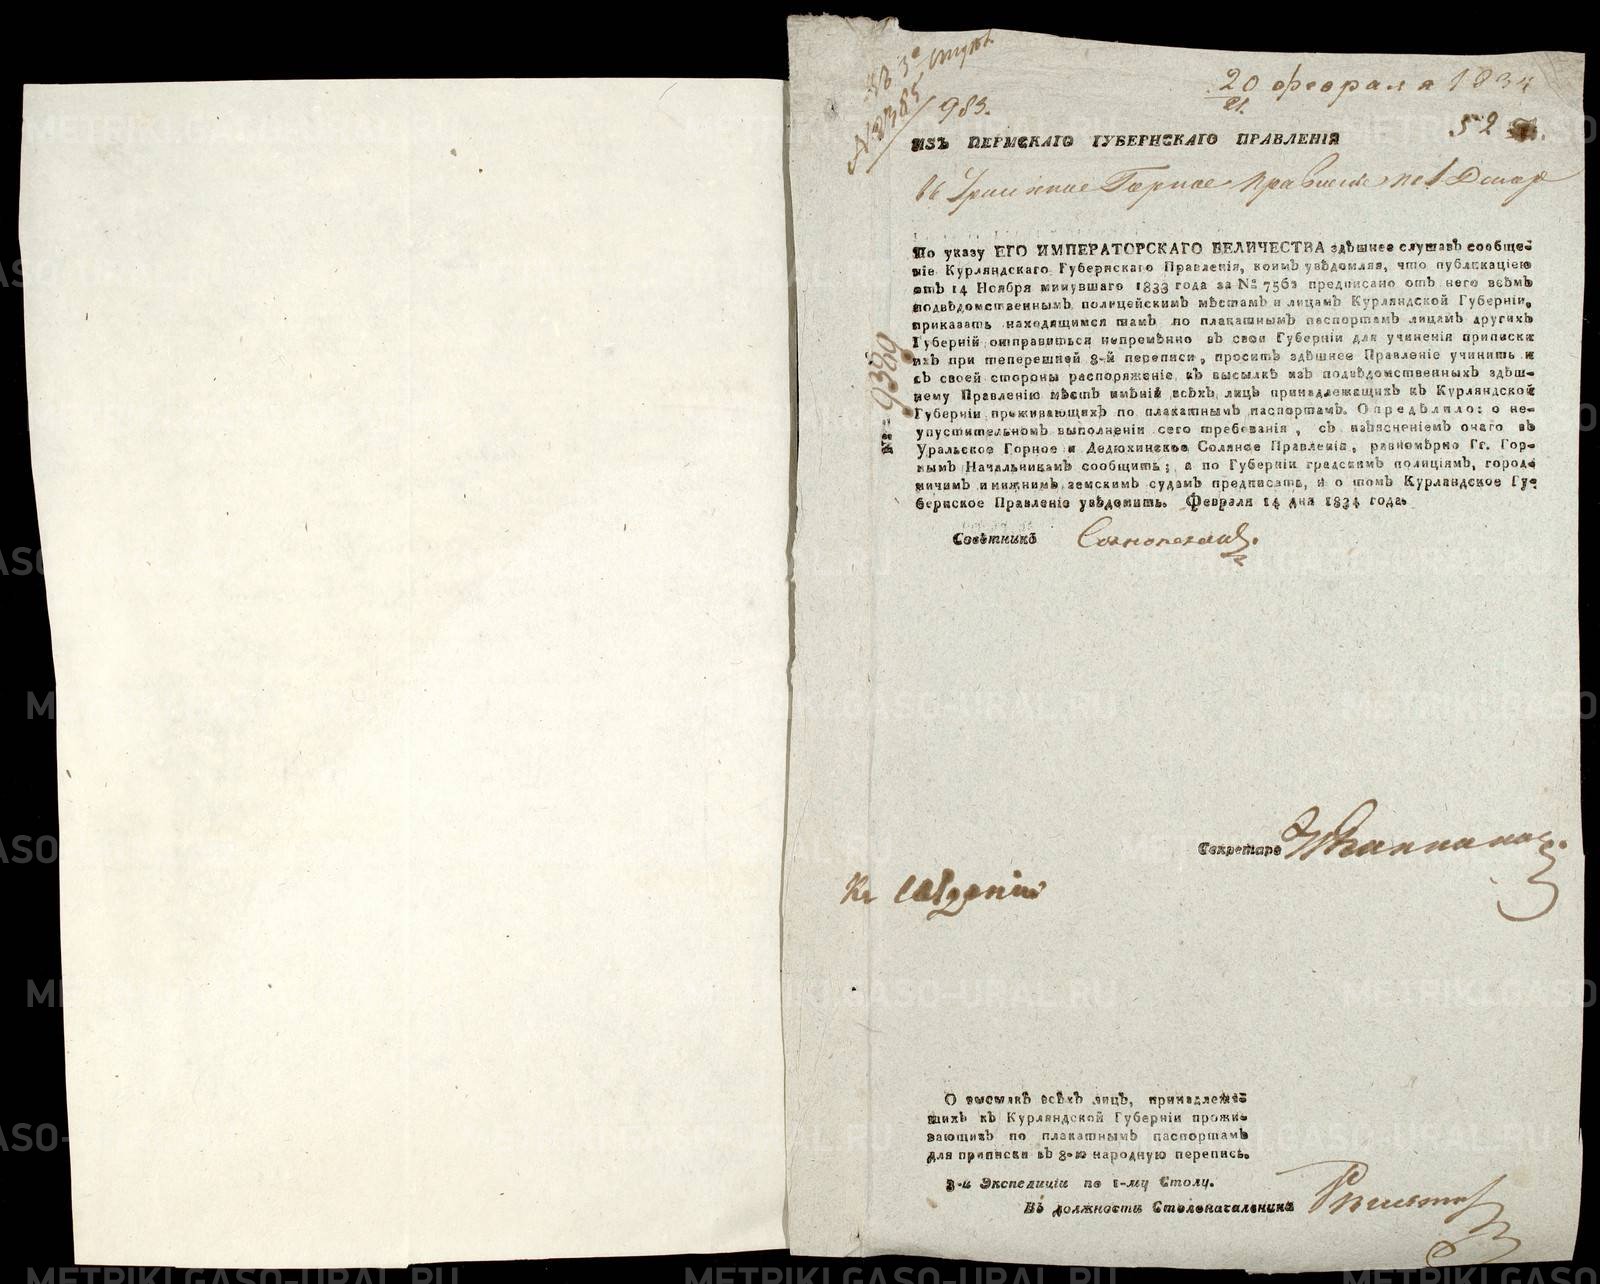 № 2385 / 983.
20 февраля 1834
21.
52
ИЗЪ ПЕРМСКАГО ГУБЕРНСКАГО ПРАВЛЕНІЯ
Горное
По указу ЕГО ИМПЕРАТОРСКАГО ВЕЛИЧЕСТВА здѣшнее слушавъ сообще-
ніе Курляндскаго Губернскаго Правленія, коимъ увѣдомляя, что публикаціею
отъ 14 Ноября минувшаго 1833 года за № 7563 предписано отъ него всѣмъ
подвѣдомственнымъ полицейскимъ мѣстамъ и лицамъ Курляндской Губерніи,
приказать находящимся тамъ по плакатнымъ паспортамъ лицамъ другихъ
Губерній отправиться непремѣнно въ свои Губерніи для учиненія приписки
ихъ при теперешней 8-й переписи, проситъ здѣшнее Правленіе учинить и
съ своей стороны распоряженіе къ высылкѣ изъ подвѣдомственныхъ здѣш-
нему Правленію мѣстъ имѣній всѣхъ лицъ принадлежащихъ къ Курляндской
Губерніи проживающихъ по плакатнымъ паспортамъ. Опредѣлило: о не-
упустительномъ выполненіи сего требованія, съ изъясненіемъ онаго въ
Уральское Горное и Дедюхинское Соляное Правленія, равномѣрно Гг. Гор-
нымъ Начальникамъ сообщить; а по Губерніи градскимъ полиціямъ, город-
ничимъ и нижнимъ земскимъ судамъ предписать, и о томъ Курляндское Гу-
бернское Правленіе увѣдомить. Февраля 14 дня 1834 года.
№ 9389
Совѣтникъ
Секретарь
Къ свѣденію
О высылкѣ всѣхъ лицъ, принадлежа-
щихъ къ Курляндской Губерніи прожи-
вающихъ по плакатнымъ паспортамъ
для приписки въ 8-ю народную перепись.
3-й Экспедиціи по 1-му Столу.
Въ должности Столоначальника
METRIKI.GASO-URAL.RU